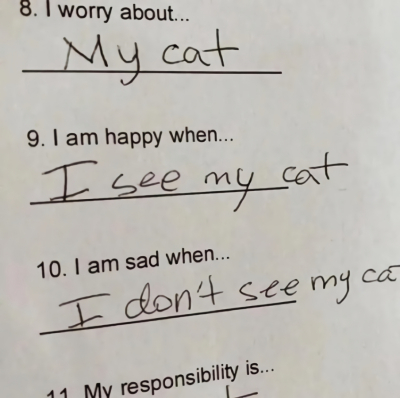 8. I worry about...
My cat
9. I am happy when...
I see my cat
10. I am sad when...
I don't see my ca
11. My responsibility is...